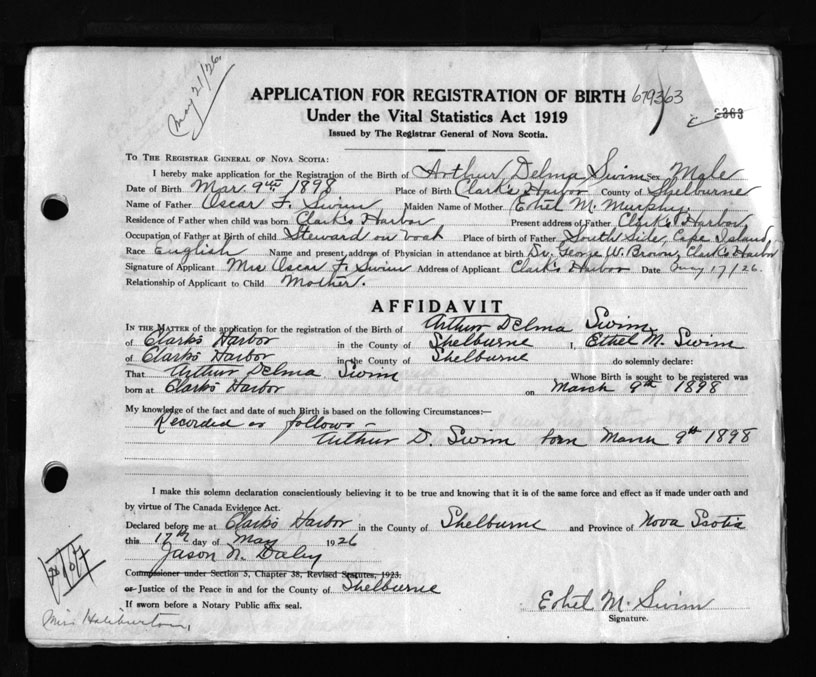 May 21/26.
APPLICATION FOR REGISTRATION OF BIRTH 679363
Under the Vital Statistics Act 1919 2363
Issued by The Registrar General of Nova Scotia.
TO THE REGISTRAR GENERAL OF NOVA SCOTIA:
I hereby make application for the Registration of the Birth of Arthur Delma Swim Sex Male
Date of Birth Mar. 9th 1898 Place of Birth Clark's Harbor County of Shelburne
Name of Father Oscar F. Swim Maiden Name of Mother Ethel M. Murphy.
Residence of Father when child was born Clark's Harbor Present address of Father Clark's Harbor
Occupation of Father at Birth of child Steward on boat Place of birth of Father South Side, Cape Island,
Race English Name and present address of Physician in attendance at birth Dr. George W. Brown, Clark's Harbor
Signature of Applicant Mrs Oscar F. Swim Address of Applicant Clark's Harbor Date May 17/26.
Relationship of Applicant to Child Mother.
AFFIDAVIT
IN THE MATTER of the application for the registration of the Birth of Arthur Delma Swim
of Clark's Harbor in the County of Shelburne I, Ethel M. Swim
of Clark's Harbor in the County of Shelburne do solemnly declare:
That Arthur Delma Swim Whose Birth is sought to be registered was
born at Clark's Harbor on March 9th 1898
My knowledge of the fact and date of such Birth is based on the following Circumstances:—
Recorded as follows -
Arthur D. Swim born March 9th 1898
I make this solemn declaration conscientiously believing it to be true and knowing that it is of the same force and effect as if made under oath and
by virtue of The Canada Evidence Act.
Declared before me at Clark's Harbor in the County of Shelburne and Province of Nova Scotia
this 17th day of May 1926
Jason N. Daley
Commissioner under Section 5, Chapter 38, Revised Statutes, 1923.
or Justice of the Peace in and for the County of Shelburne
If sworn before a Notary Public affix seal.
Ethel M. Swim
Signature.
Miss Haliburton,